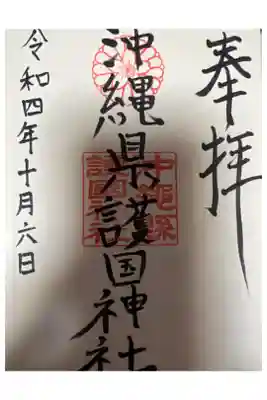 奉拝
沖縄県護国神社
令和四年十月六日